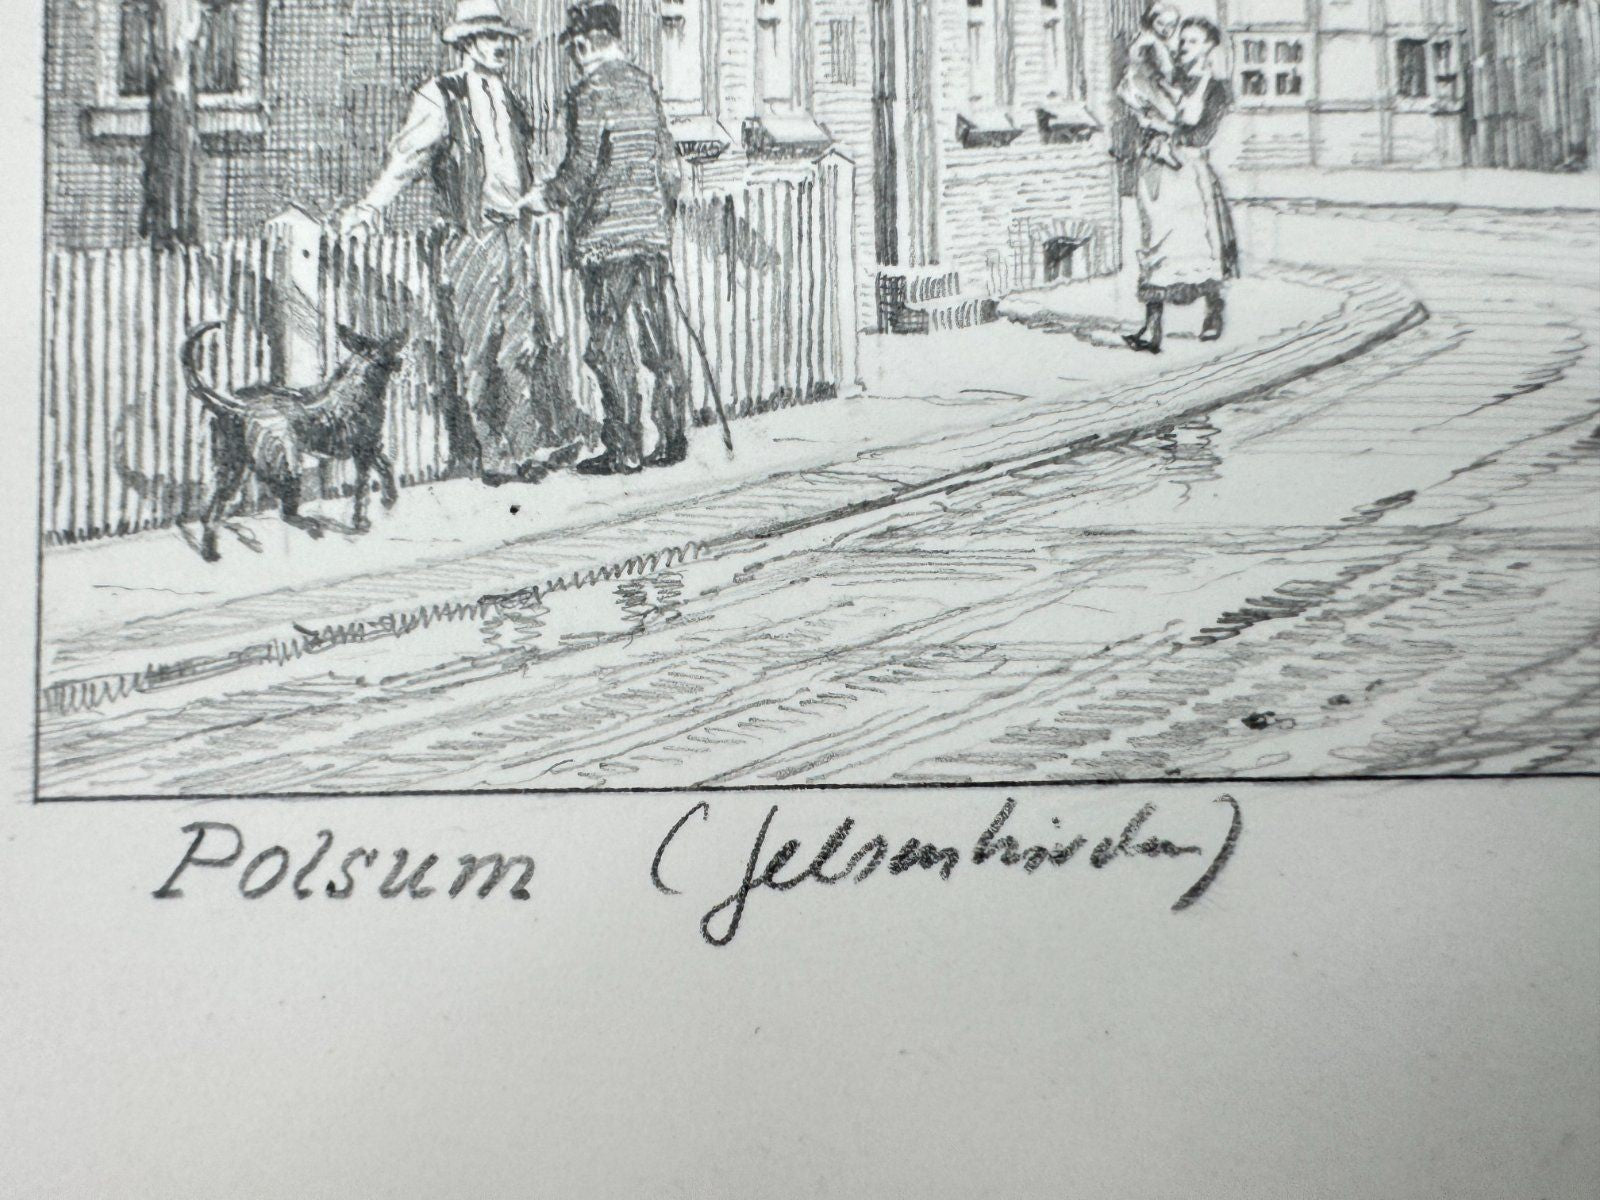 Polsum (Gelsenkirchen)